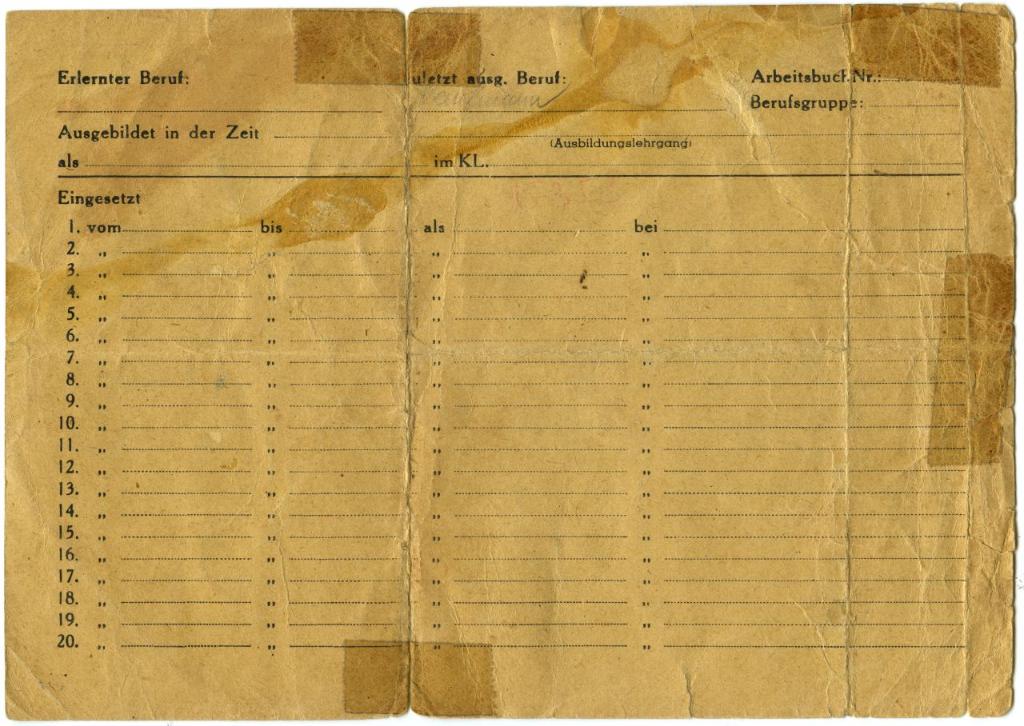 Erlernter Beruf: uletzt ausg. Beruf: Arbeitsbuch Nr.:
Kaufmann
Berufsgruppe:
Ausgebildet in der Zeit
(Ausbildungslehrgang)
als im KL.
Eingesetzt
1. vom bis als bei
2. " " " "
3. " " " "
4. " " " "
5. " " " "
6. " " " "
7. " " " "
8. " " " "
9. " " " "
10. " " " "
11. " " " "
12. " " " "
13. " " " "
14. " " " "
15. " " " "
16. " " " "
17. " " " "
18. " " " "
19. " " " "
20. " " " "